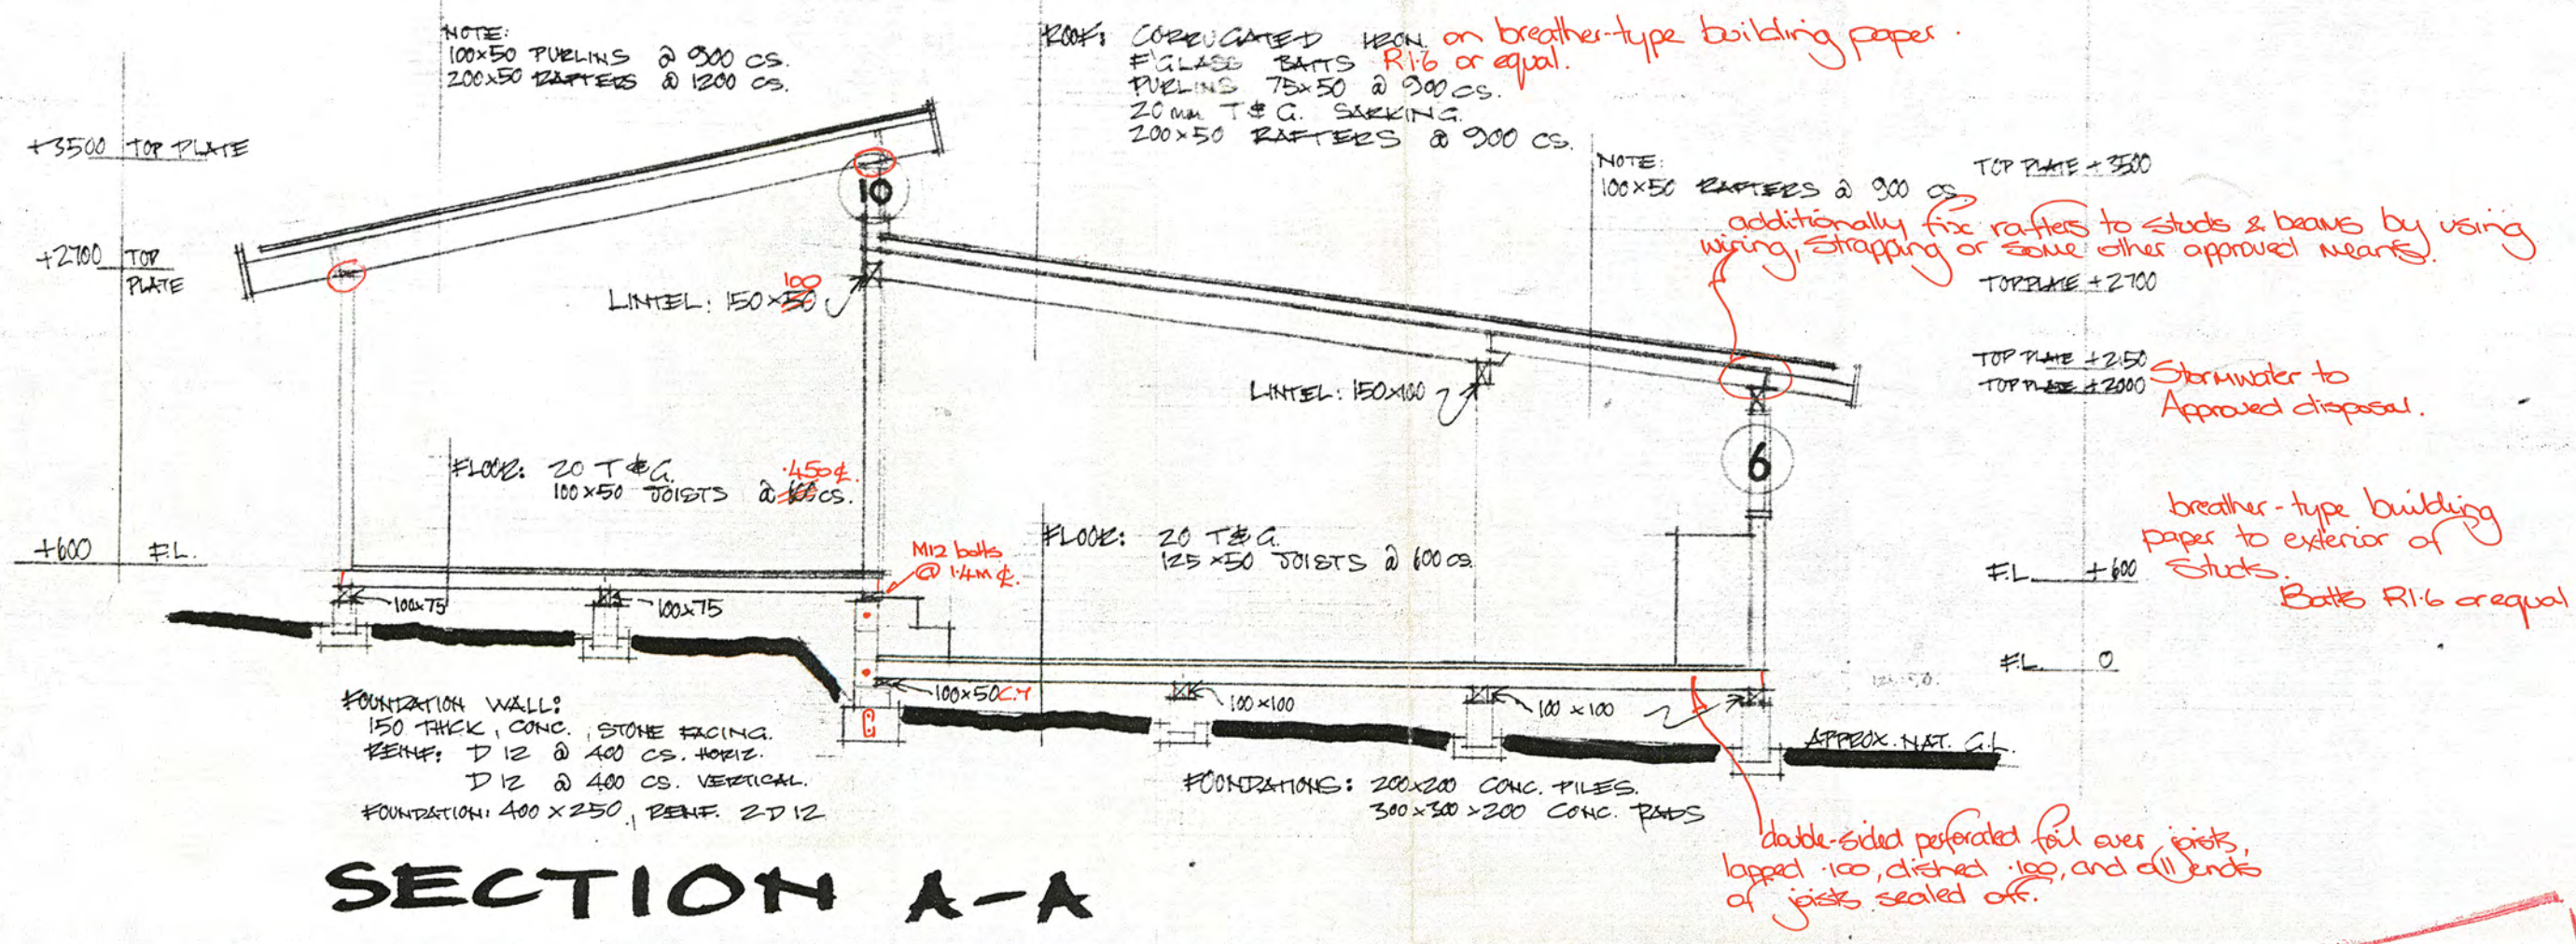 NOTE:
100x50 PURLINS @ 900 CS.
200x50 RAFTERS @ 1200 CS.
ROOF: CORRUGATED IRON on breather-type building paper.
F'GLASS BATTS R1·6 or equal.
PURLINS 75x50 @ 900 CS.
20mm T & G. SARKING.
200x50 RAFTERS @ 900 CS.
NOTE:
100x50 RAFTERS @ 900 CS.
additionally fix rafters to studs & beams by using
wiring, strapping or some other approved means.
+3500 TOP PLATE
+2700 TOP
PLATE
+600 F.L.
TOP PLATE +3500
TOP PLATE +2700
TOP PLATE +2150
TOP PLATE +2000
Stormwater to
Approved disposal.
10
LINTEL: 150x50
100
LINTEL: 150x100
6
FLOOR: 20 T & G.
100x50 JOISTS @ CS.
·450 ¢.
M12 bolts
@ 1·4M ¢.
FLOOR: 20 T & G.
125x50 JOISTS @ 600 CS.
breather-type building
paper to exterior of
studs.
Batts R1·6 or equal
F.L. +600
F.L. 0
100x75
100x75
100x50 C.T
100x100
100x100
APPROX. NAT. G.L.
FOUNDATION WALL:
150 THICK, CONC., STONE FACING.
REINF: D12 @ 400 CS. HORIZ.
D12 @ 400 CS. VERTICAL.
FOUNDATION: 400x250, REINF. 2D12
FOUNDATIONS: 200x200 CONC. PILES.
300x300x200 CONC. PADS
double-sided perforated foil over joists,
lapped ·100, dished ·100, and all ends
of joists sealed off.
SECTION A-A